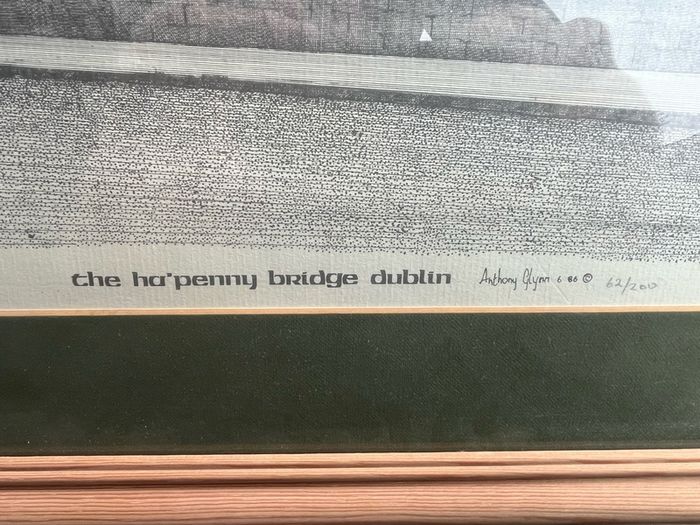 the ha'penny bridge dublin Anthony Glynn 6 86 © 62/200